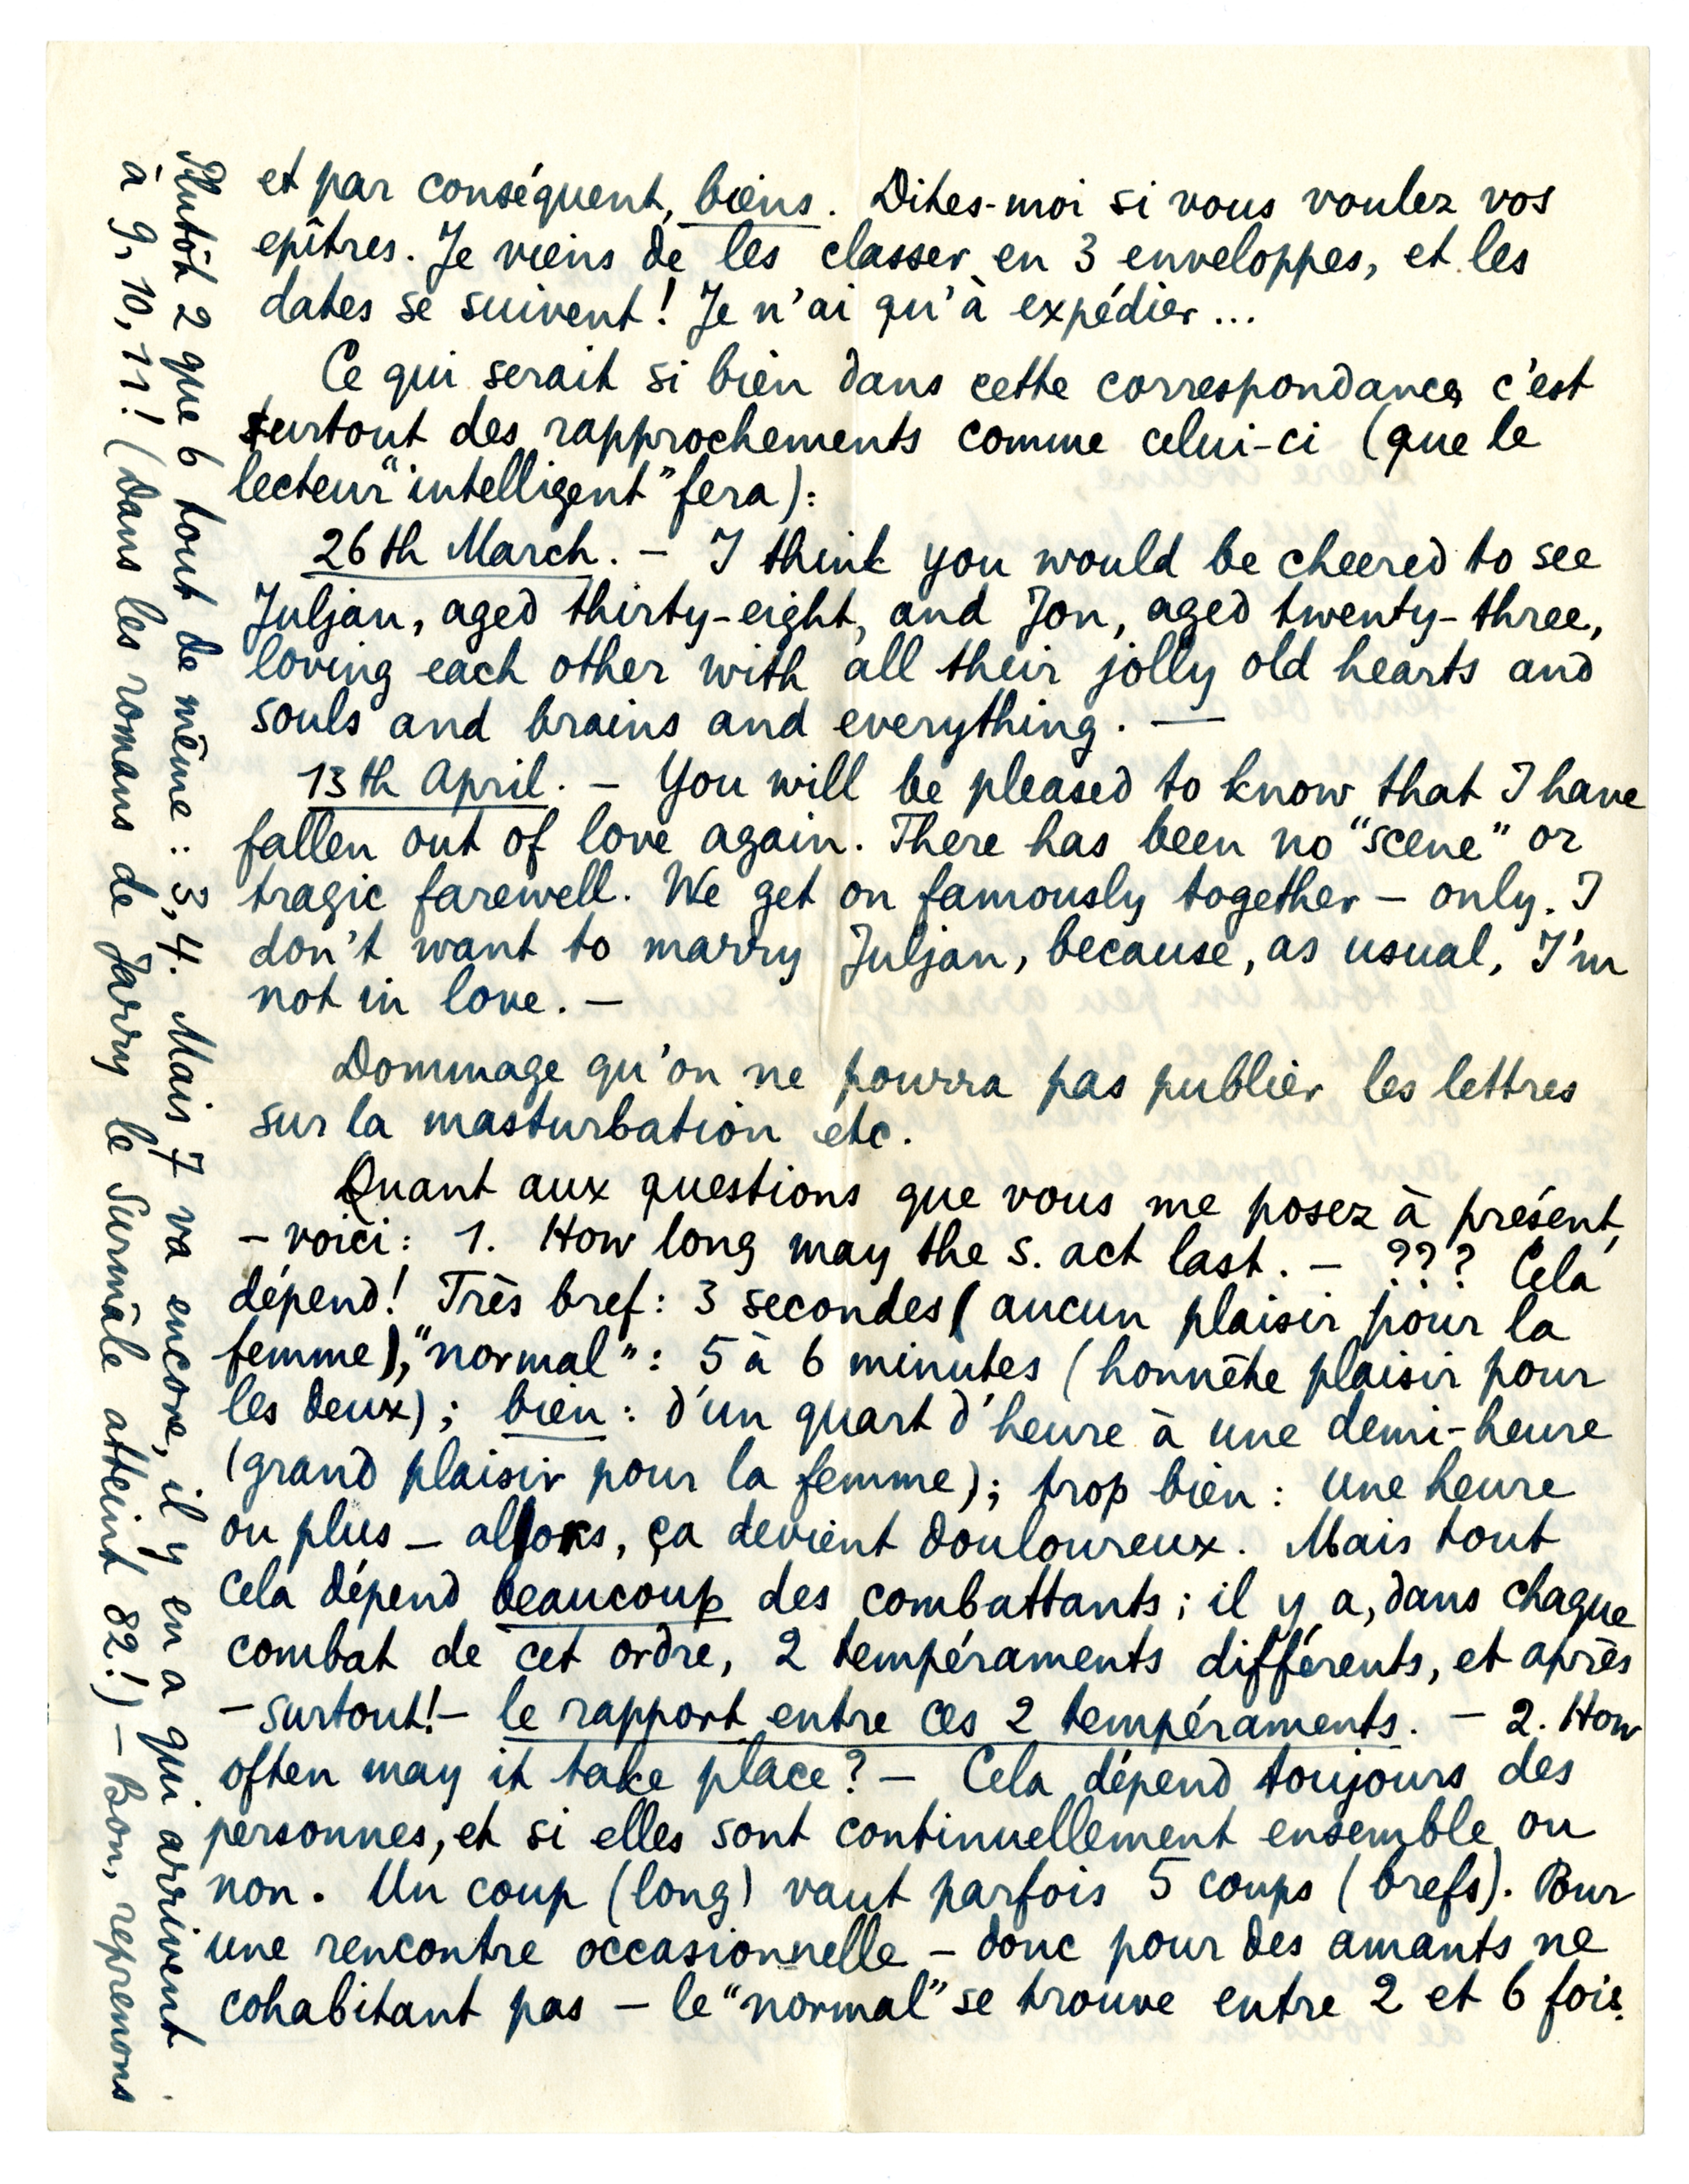 et par conséquent, biens. Dites-moi si vous voulez vos
epîtres. Je viens de les classer en 3 enveloppes, et les
dates se suivent! Je n'ai qu'à expédier...
Ce qui serait si bien dans cette correspondance, c'est
surtout des rapprochements comme celui-ci (que le
lecteur "intelligent" fera):
26th March. — I think you would be cheered to see
Juljan, aged thirty-eight, and Jon, aged twenty-three,
loving each other with all their jolly old hearts and
souls and brains and everything. —
13th April. — You will be pleased to know that I have
fallen out of love again. There has been no "scene" or
tragic farewell. We get on famously together — only. I
don't want to marry Juljan, because, as usual, I'm
not in love. —
Dommage qu'on ne pourra pas publier les lettres
sur la masturbation etc.
Quant aux questions que vous me posez à présent,
— voici: 1. How long may the s. act last. — ??? Cela
dépend! Très bref: 3 secondes (aucun plaisir pour la
femme), "normal": 5 à 6 minutes (honnête plaisir pour
les deux); bien: d'un quart d'heure à une demi-heure
(grand plaisir pour la femme); trop bien: une heure
ou plus — alors, ça devient douloureux. Mais tout
cela dépend beaucoup des combattants; il y a, dans chaque
combat de cet ordre, 2 tempéraments différents, et après
— surtout! — le rapport entre ces 2 tempéraments. — 2. How
often may it take place? — Cela dépend toujours des
personnes, et si elles sont continuellement ensemble ou
non. Un coup (long) vaut parfois 5 coups (brefs). Pour
une rencontre occasionnelle — donc pour des amants ne
cohabitant pas — le "normal" se trouve entre 2 et 6 fois.
Plutôt 2 que 6 tout de même: 3, 4. Mais 7 va encore, il y en a qui arrivent
à 9, 10, 11! (Dans les romans de Jarry le Surmâle atteint 82!) — Bon, reprenons